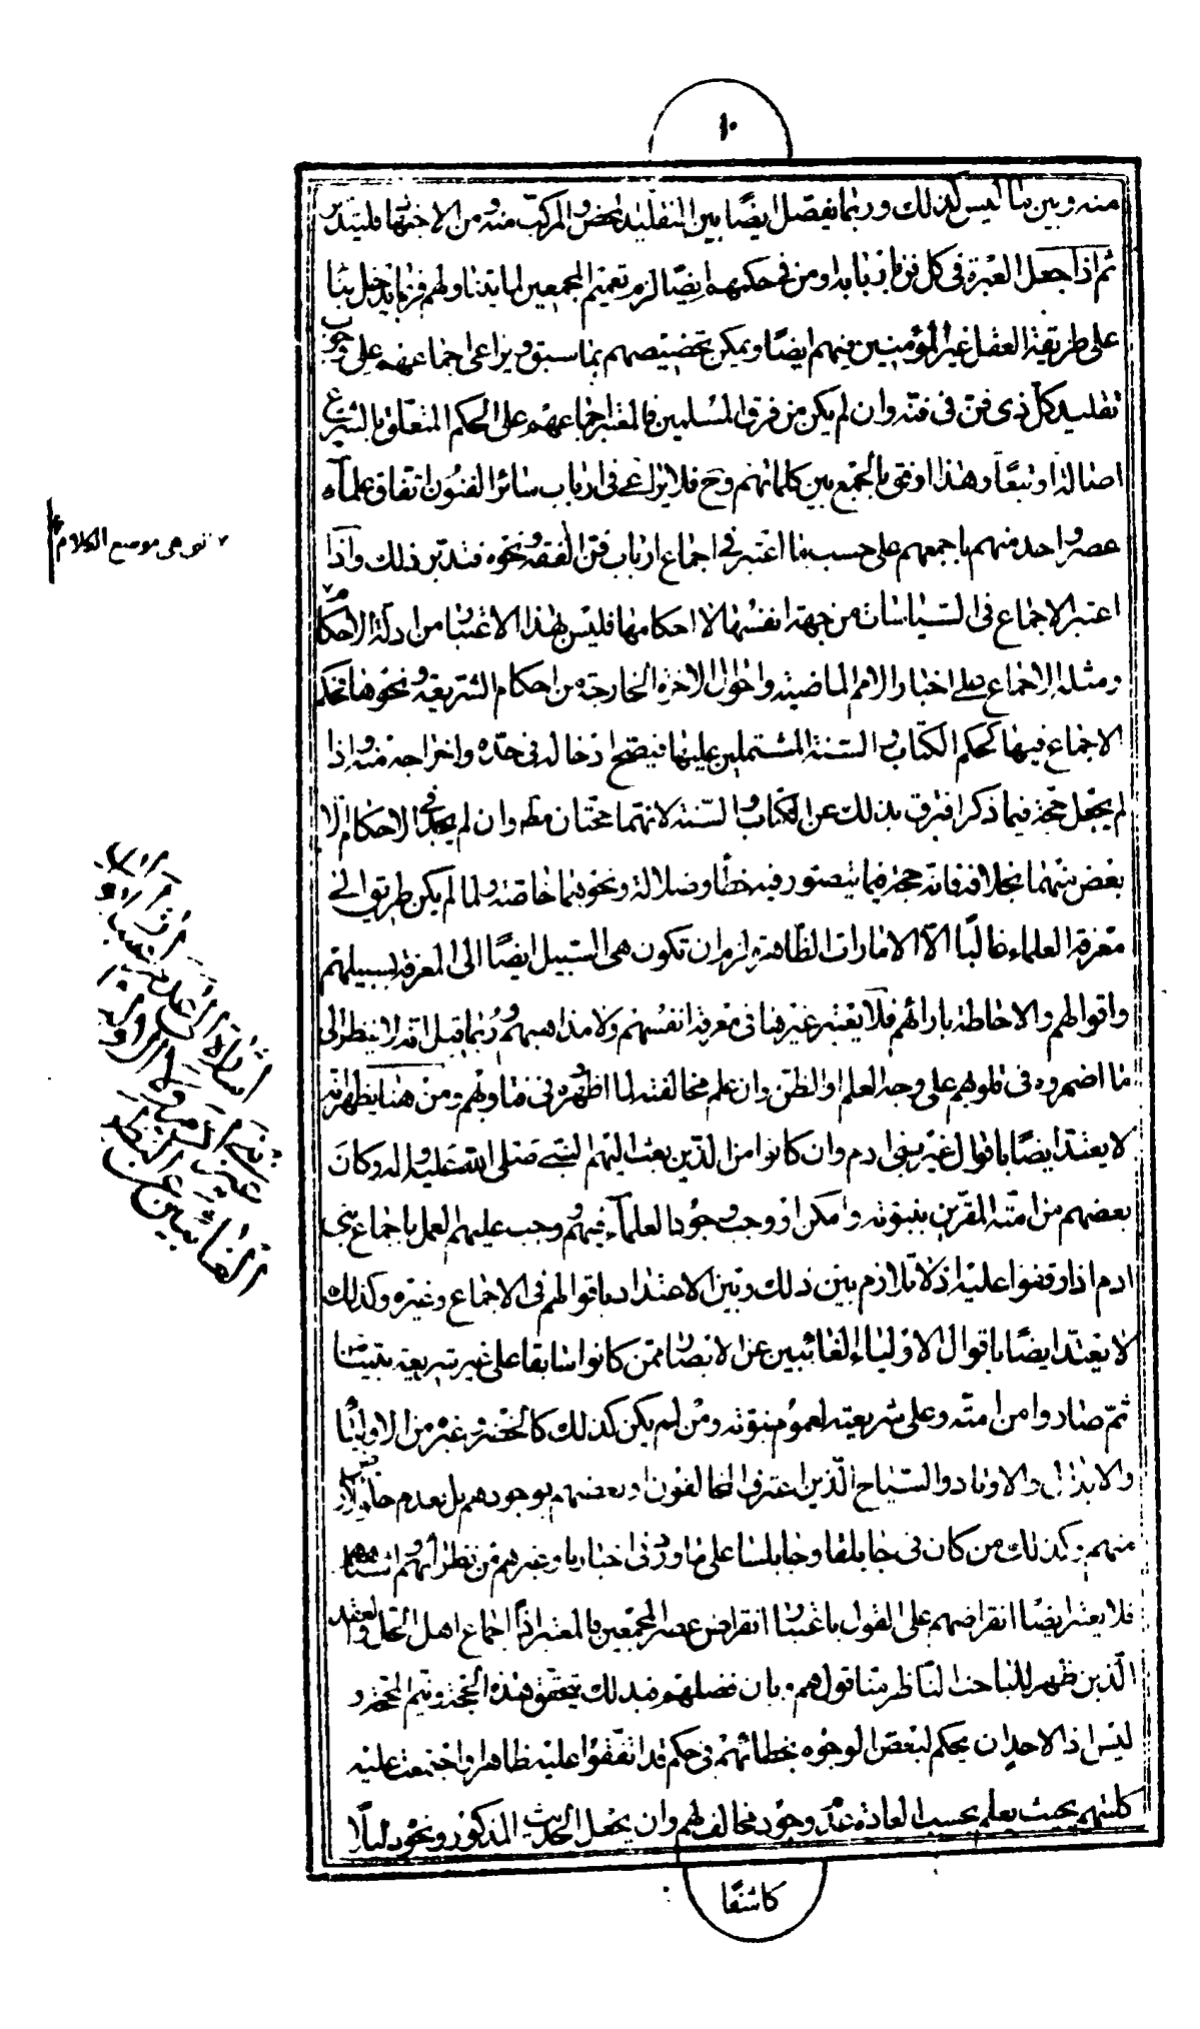 ١٠
منه وبين ما ليس كذلك وربما يفصل ايضًا بين التقليد المحض والمركب منه ومن الاجتهاد فليتدبر
ثم اذا جعل العبرة في كل فن باربابه او من في حكمهم ايضًا لزم تعميم المجمعين لما يتناولهم فربما يدخل بناء
على طريقة العقل غير المؤمنين فيهم ايضًا ويمكن تخصيصهم بما سبق ويراعى اجماعهم على وجوب
تقليد كل ذى فن في فنه وان لم يكن من فرق المسلمين فالمعتبر اجماعهم على الحكم المتعلق بالشرع
اصالة او تبعًا وهذا اوفق بالجمع بين كلماتهم وح فلا يراعى في ارباب سائر الفنون اتفاق علماء
عصر واحد منهم باجمعهم على حسب ما اعتبر في اجماع ارباب فن الفقه ونحوه فتدبر ذلك واذا
اعتبر الاجماع في السياسات من جهة انفسها لا احكامها فليس بهذا الاعتبار من ادلة الاحكام
ومثله الاجماع على اخبار الامم الماضية واحوال الاخرة الخارجة من احكام الشريعة ونحوها فحكم
الاجماع فيها كحكم الكتاب والسنة المشتملين عليها فيصح ادخاله في حده واخراجه منه واذا
لم يجعل حجة فيما ذكر افترق بذلك عن الكتاب والسنة لانهما حجتان مط وان لم يجد في الاحكام الا
بعض منهما بخلافه فانه حجة فيما يتصور فيه خطأ وضلالة ونحوهما خاصة ولما لم يكن طريق الى
معرفة العلماء غالبًا الا الامارات الظاهرة لزم ان تكون هى السبيل ايضًا الى المعرفة بسبيلهم
واقوالهم والاحاطة بارائهم فلا يعتبر غيرها في معرفة انفسهم ولا مذاهبهم وربما قيل انه لا ينظر الى
ما اضمروه في قلوبهم على وجه العلم او الظن وان علم مخالفته لما اظهره في فتاويهم ومن هنا يظهر انه
لا يعتد ايضًا باقوال غير بنى ادم وان كانوا من الذين بعث اليهم النبى صلى الله عليه واله وكان
بعضهم من امته المقرين بنبوته وامكن او وجب وجود العلماء فيهم ووجب عليهم العمل باجماع بنى
ادم اذا وقفوا عليه اذ لا تلازم بين ذلك وبين الاعتداد باقوالهم في الاجماع وغيره وكذلك
لا يعتد ايضًا باقوال الاولياء الغائبين عن الابصار ممن كانوا سابقا على غير شريعة نبينا
ثم صاروا من امته وعلى شريعته لعموم نبوته ومن لم يكن كذلك كالخضر وغيره من الاولياء
والابدال والاوتاد والسياح الذين اعترف المخالفون او بعضهم بوجودهم بل بعدم خلو الارض
منهم وكذلك من كان في جابلقا وجابلسا على ما ورد في اخبارنا وغيرهم من نظرائهم
فلا يعتبر ايضًا انقراضهم على القول باعتبار انقراض عصر المجمعين فالمعتبر اذًا اجماع اهل الحل والعقد
الذين ظهر للباحث الناظر منا قولهم وبان فضلهم فبذلك يتحقق هذه الحجة وتتم المحجة و
ليس اذ لاحد ان يحكم لبعض الوجوه بخطائهم في حكم قد اتفقوا عليه ظاهرا واجتمعت عليه
كلمتهم بحيث يعلم بحسب العادة عدم وجود مخالف لهم وان يجعل الحديث المذكور ونحوه دليلًا
كاشفًا
الى موضع الكلام
اشارة الى
الغائبين عن النظر